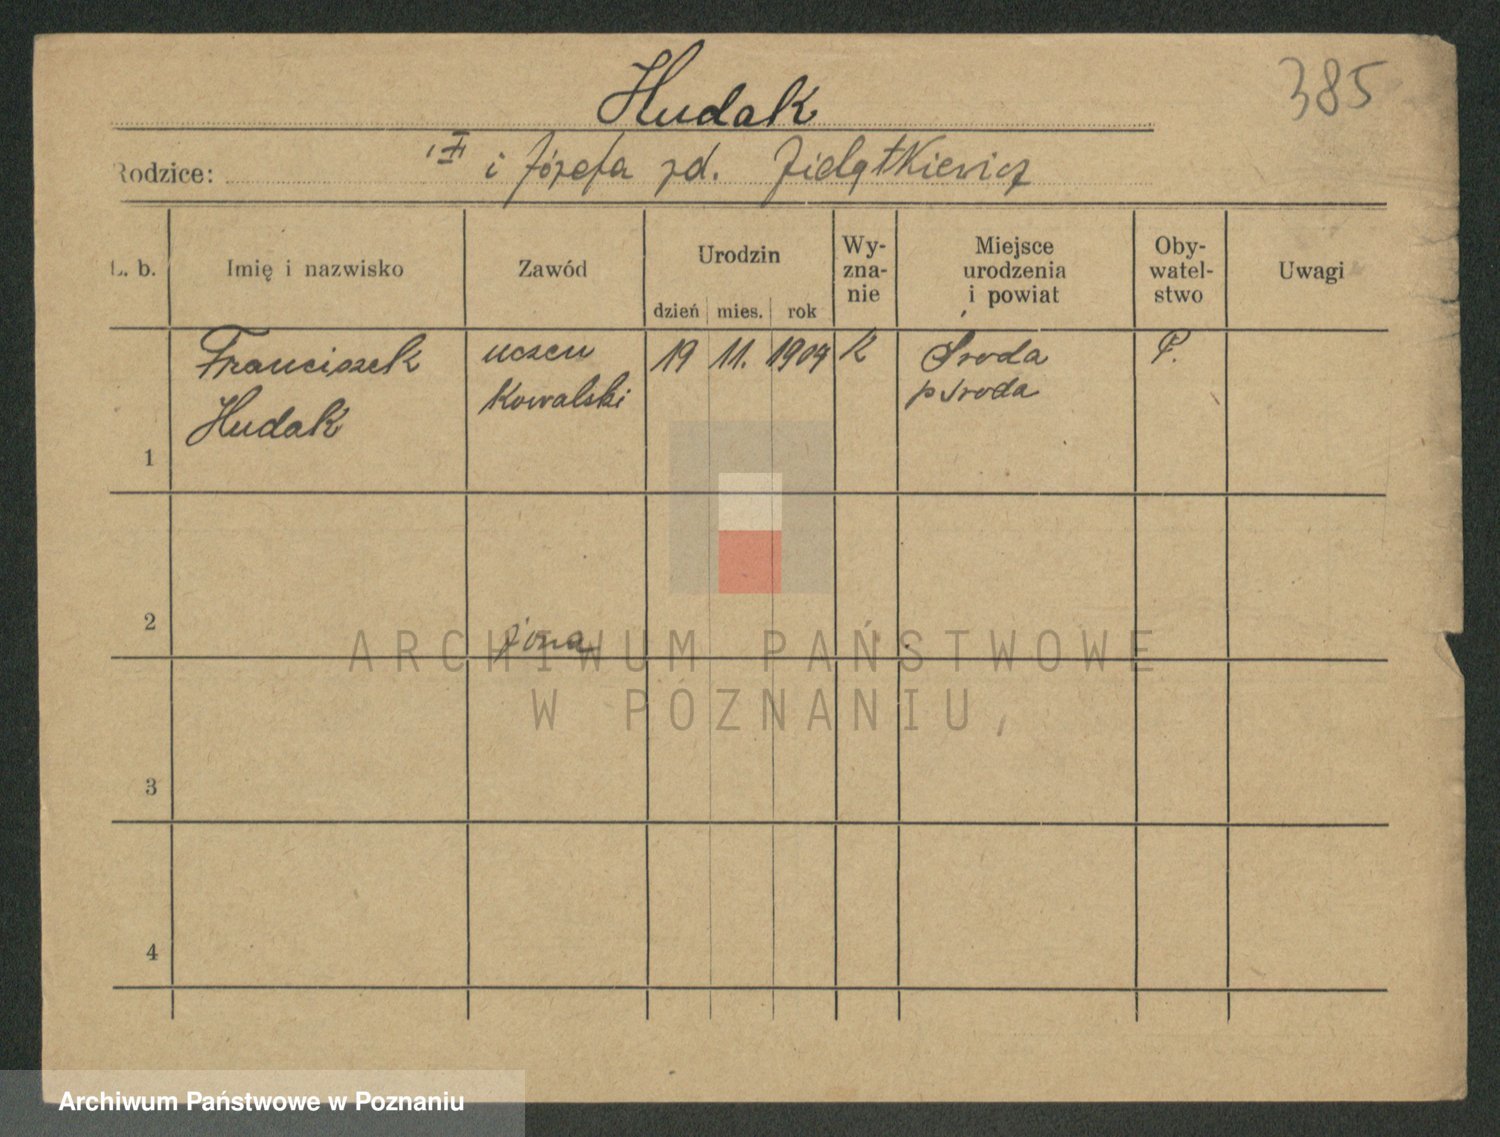 Hudak
385
Rodzice: i Józefa zd. Zielątkiewicz
L. b.
Imię i nazwisko
Zawód
Urodzin
dzień mies. rok
Wy-
zna-
nie
Miejsce
urodzenia
i powiat
Oby-
watel-
stwo
Uwagi
1
Franciszek
Hudak
uczeń
kowalski
19 11. 1909
K
Środa
p Środa
P.
2
3
4
ARCHIWUM PAŃSTWOWE
W POZNANIU,
Archiwum Państwowe w Poznaniu